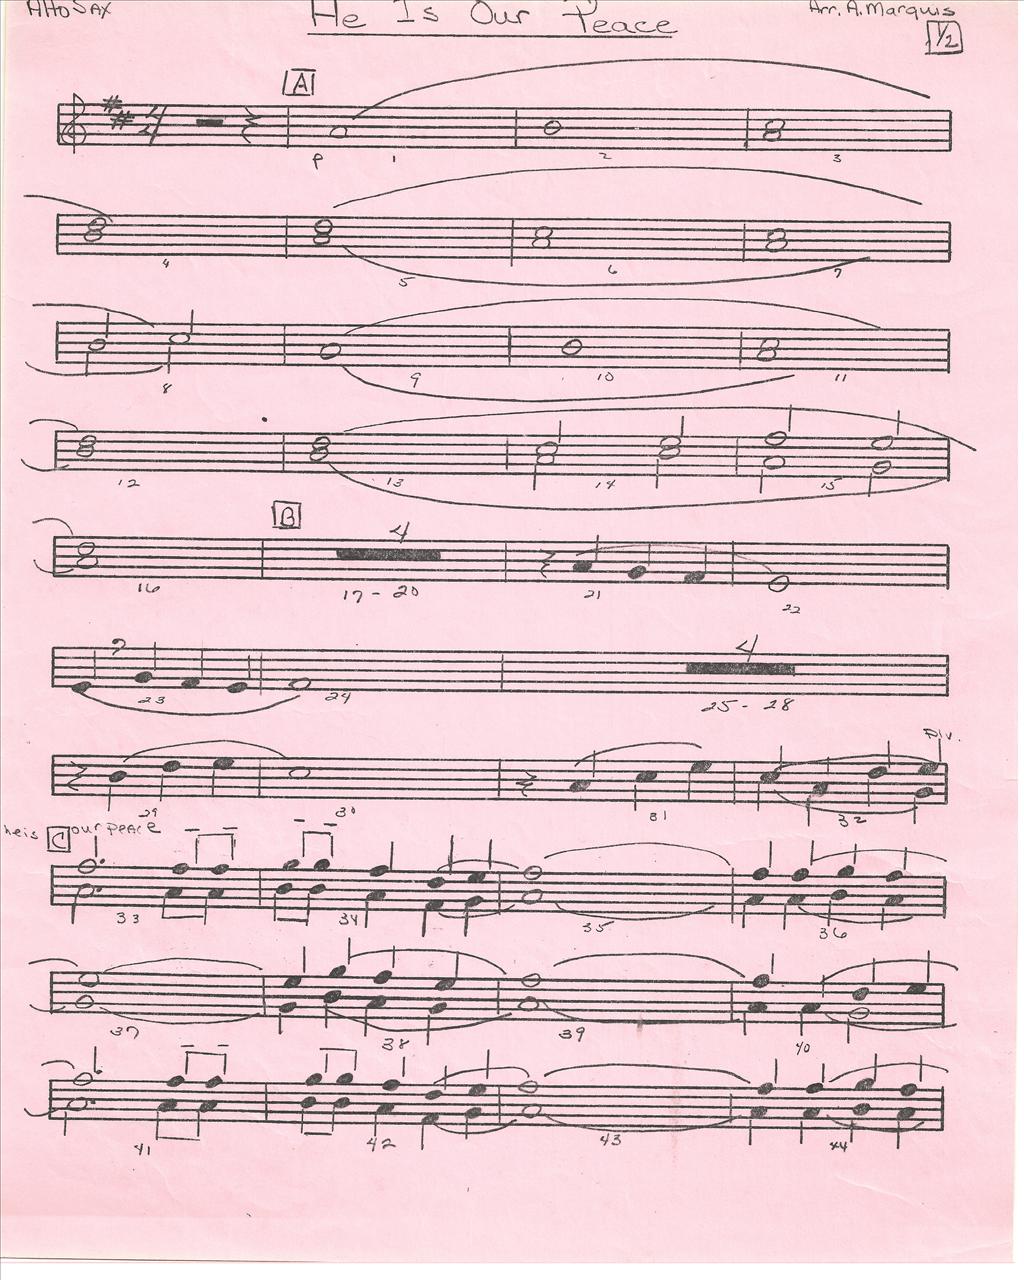 Alto Sax He Is Our Peace Arr. A. Marquis
1/2
A
4/4
p 1 2 3
4 5 6 7
8 9 10 11
12 13 14 15
B
4
16 17-20 21 22
4
23 24 25-28
Div.
29 30 31 32
he is C our peace
33 34 35 36
37 38 39 40
41 42 43 44